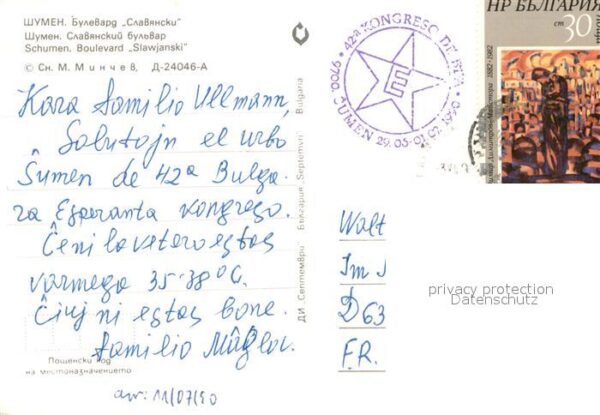 ШУМЕН. Булевард „Славянски“
Шумен. Славянский бульвар
Schumen. Boulevard "Slawjanski"
© Сн. М. Минчев, Д-24046-А
Kara familio Ullmann,
Salutojn el urbo
Ŝumen de 42a Bulga-
ra Esperanta kongreso.
Ĉe ni la vetero estas
varmega 35-38°C.
Ĉiuj ni estas bone.
Familio
Пощенски код
на местоназначението
am: 11/07/90
ДИ „Септември“ България Septemvri Bulgaria
42a KONGRESO DE BEA
9700, ŜUMEN 29.05-01.07.1990
E
НР БЪЛГАРИЯ
поща
ст 30
1882-1982
Walt
Im
D 63
F.R.
privacy protection
Datenschutz